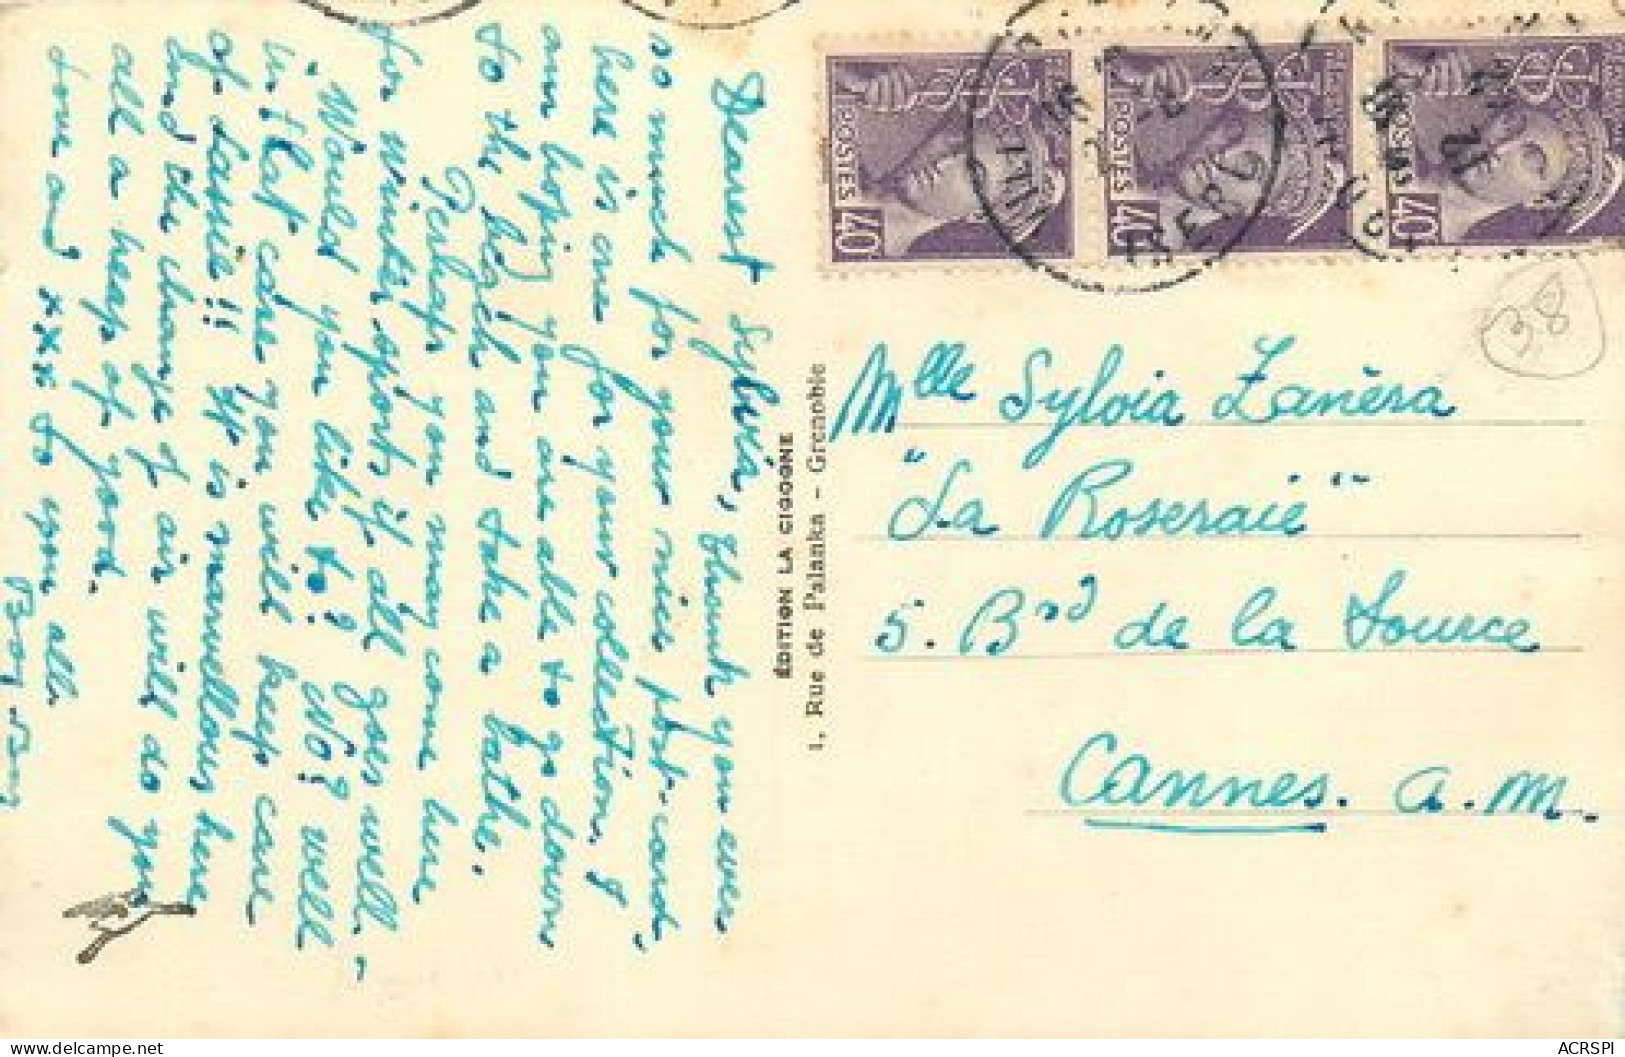 Dearest Sylvia, Thank you ever
so much for your nice post-card,
here is one for your collection. I
am hoping you are able to go down
to the beach and take a bathe.
Perhaps you may come here
for winter sports if all goes well.
Would you like to? No? well
in that case you will keep care
of Lassie!! It is marvellous here
and the change of air will do you
all a heap of good.
Love and xxx to you all.
ÉDITION LA CIGOGNE
1, Rue de Palanka - Grenoble
POSTES 40
POSTES 40
POSTES 40
38
Mlle Sylvia Zanèra
"La Roseraie"
5. Brd de la Source
Cannes. A.M.
ACRSPI